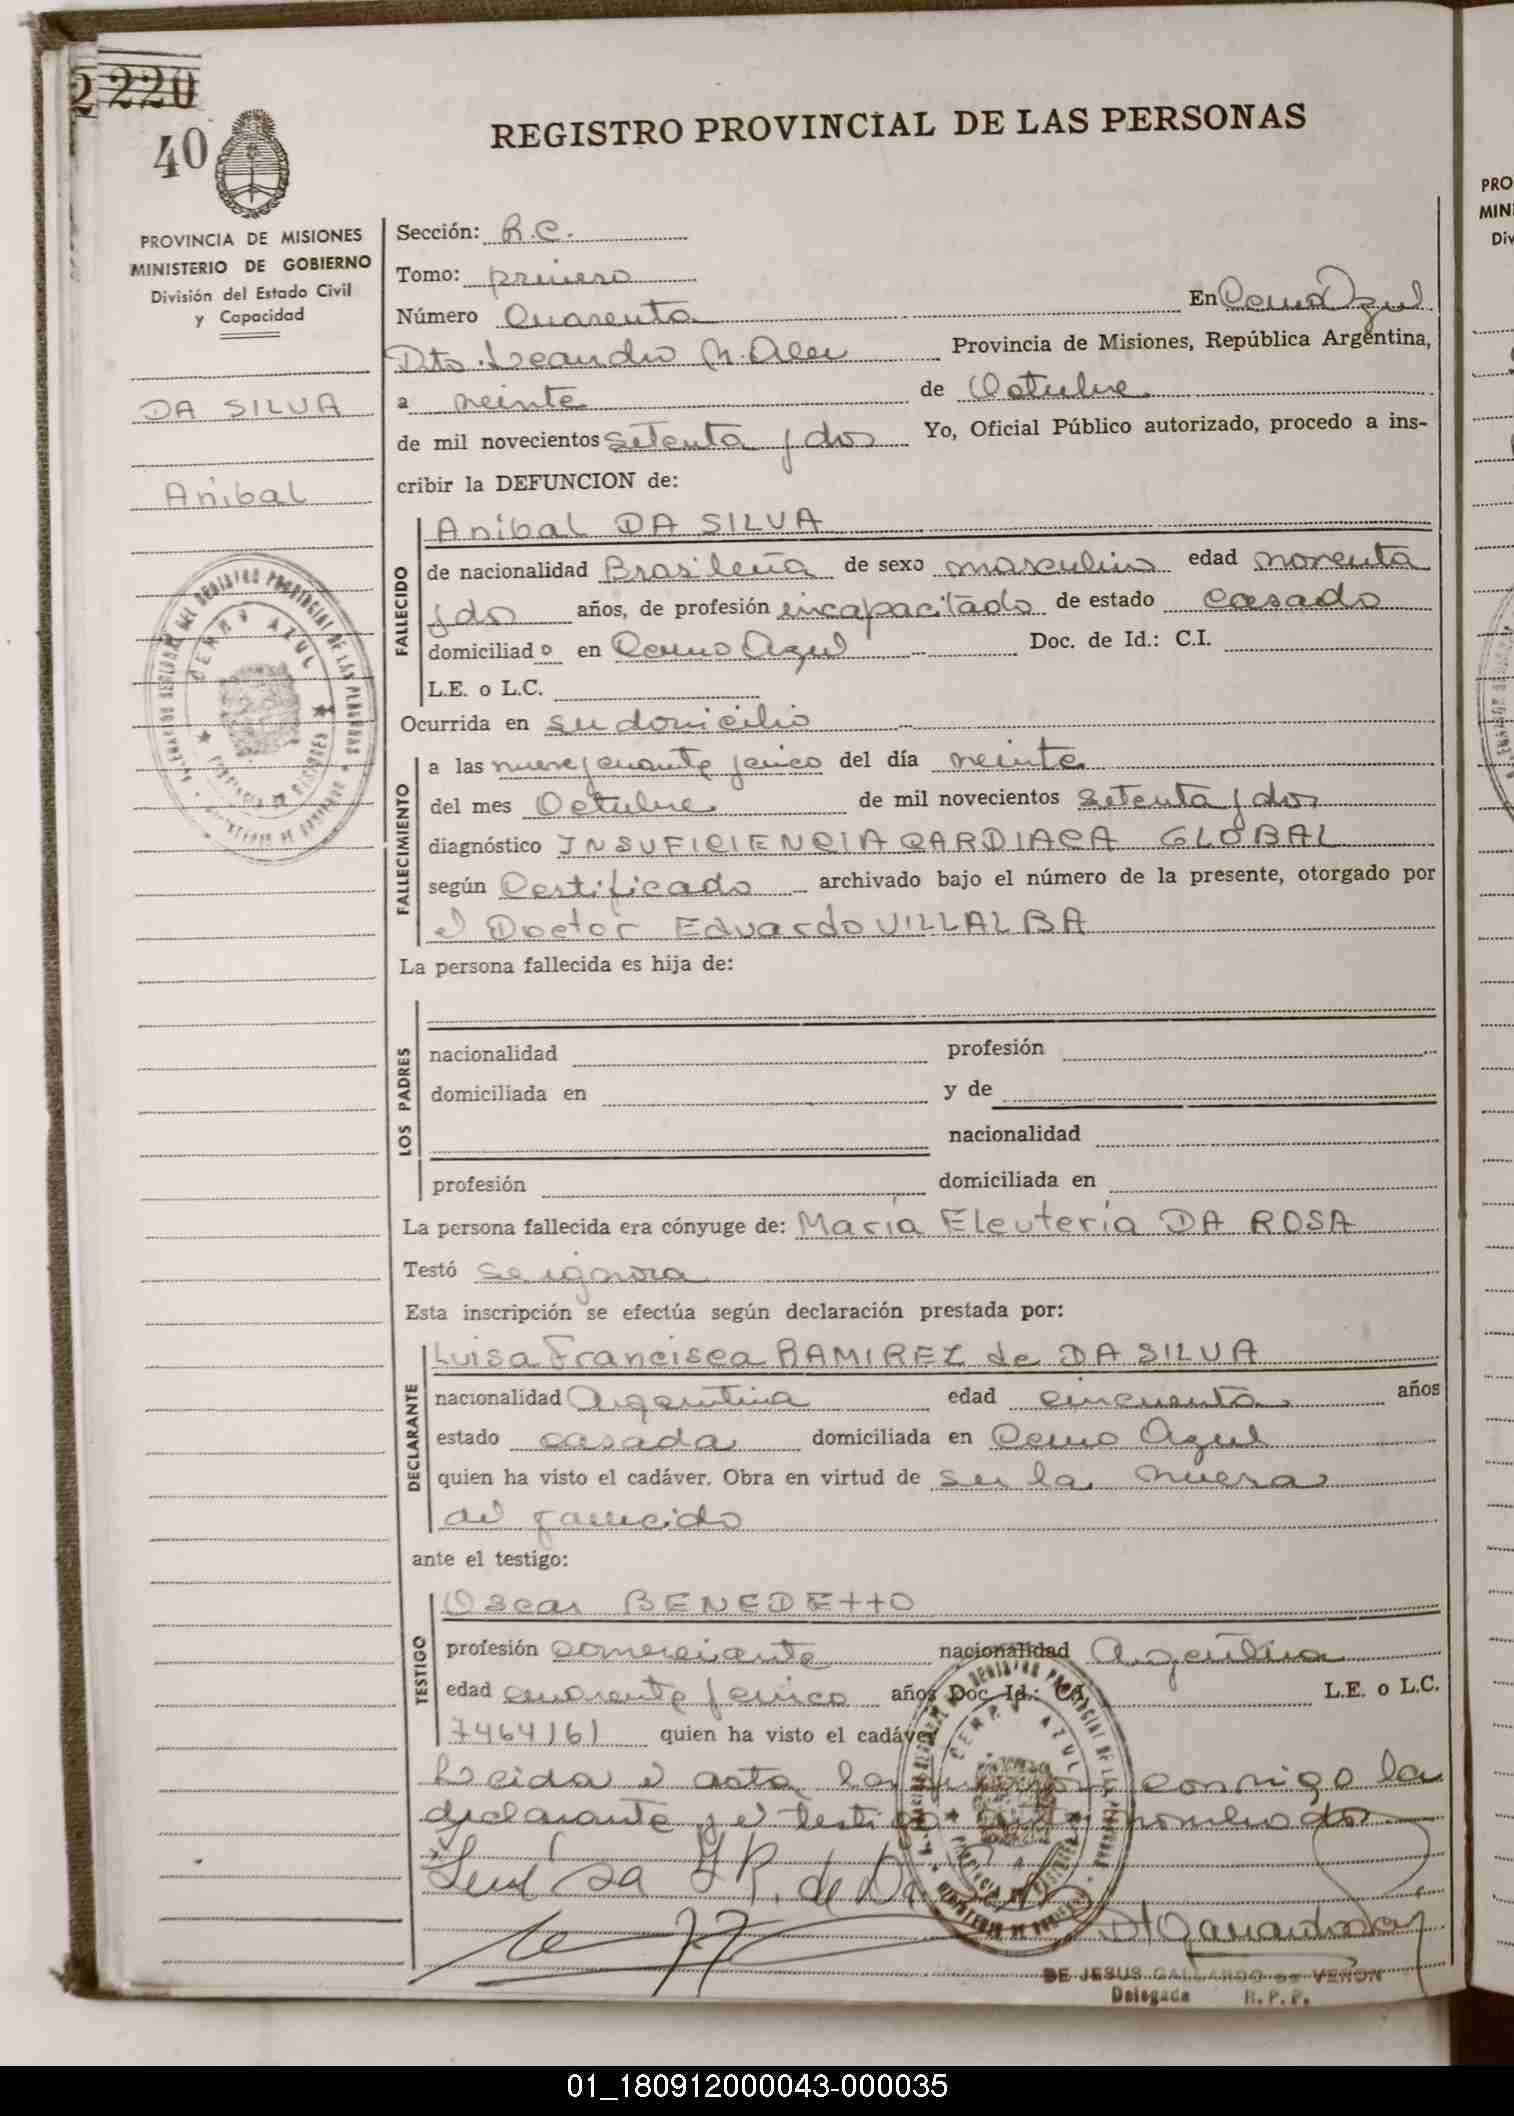 2 220
40
REGISTRO PROVINCIAL DE LAS PERSONAS
PROVINCIA DE MISIONES
MINISTERIO DE GOBIERNO
División del Estado Civil
y Capacidad
DA SILVA
Anibal
Sección: R.C.
Tomo: primero
Número Cuarenta En Cerro Azul
Dto. Leandro N. Alem Provincia de Misiones, República Argentina,
a veinte de Octubre
de mil novecientos setenta y dos Yo, Oficial Público autorizado, procedo a ins-
cribir la DEFUNCION de:
FALLECIDO
Anibal DA SILVA
de nacionalidad Brasileña de sexo masculino edad noventa
y dos años, de profesión incapacitado de estado casado
domiciliado en Cerro Azul Doc. de Id.: C.I.
L.E. o L.C.
Ocurrida en su domicilio
FALLECIMIENTO
a las nueve y cuarenta y cinco del día veinte
del mes Octubre de mil novecientos setenta y dos
diagnóstico INSUFICIENCIA CARDIACA GLOBAL
según Certificado archivado bajo el número de la presente, otorgado por
el Doctor Eduardo VILLALBA
La persona fallecida es hija de:
LOS PADRES
nacionalidad profesión
domiciliada en y de
nacionalidad
profesión domiciliada en
La persona fallecida era cónyuge de: María Eleuteria DA ROSA
Testó se ignora
Esta inscripción se efectúa según declaración prestada por:
DECLARANTE
Luisa Francisca RAMIREZ de DA SILVA
nacionalidad Argentina edad cincuenta años
estado casada domiciliada en Cerro Azul
quien ha visto el cadáver. Obra en virtud de ser la nuera
del fallecido
ante el testigo:
TESTIGO
Oscar BENEDETTO
profesión comerciante nacionalidad Argentina
edad cuarenta y cinco años Doc. Id.: C.I. L.E. o L.C.
7464161 quien ha visto el cadáver
Leida el acta la conmigo la
declarante y el testigo nombrado
Luisa F R. de Da
CERRO AZUL
PROVINCIA DE MISIONES
DE JESUS GALLARDO DE VERON
Delegada R.P.P.
PRO
MIN
Div
01_180912000043-000035